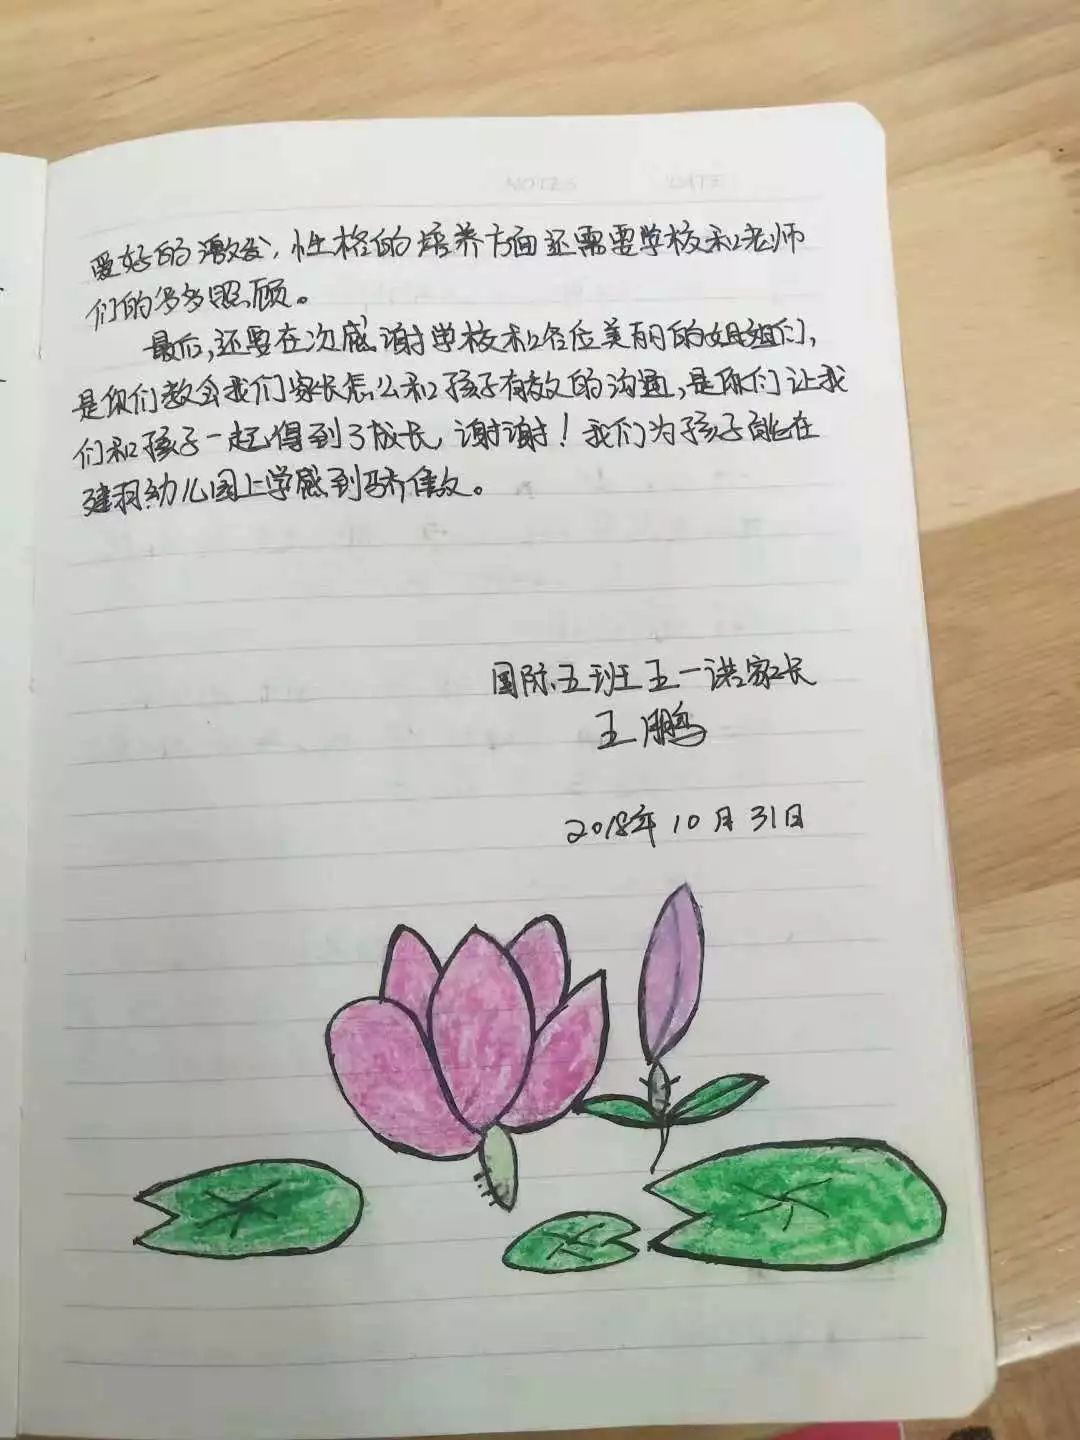 NOTES DATE
爱好的激发，性格的培养方面还需要学校和老师
们的多多照顾。
最后，还要在次感谢学校和各位美丽的姐姐们，
是你们教会我们家长怎么和孩子有效的沟通，是你们让我
们和孩子一起得到了成长，谢谢！我们为孩子能在
建羽幼儿园上学感到骄傲。
国际五班王一诺家长
王鹏
2018年10月31日